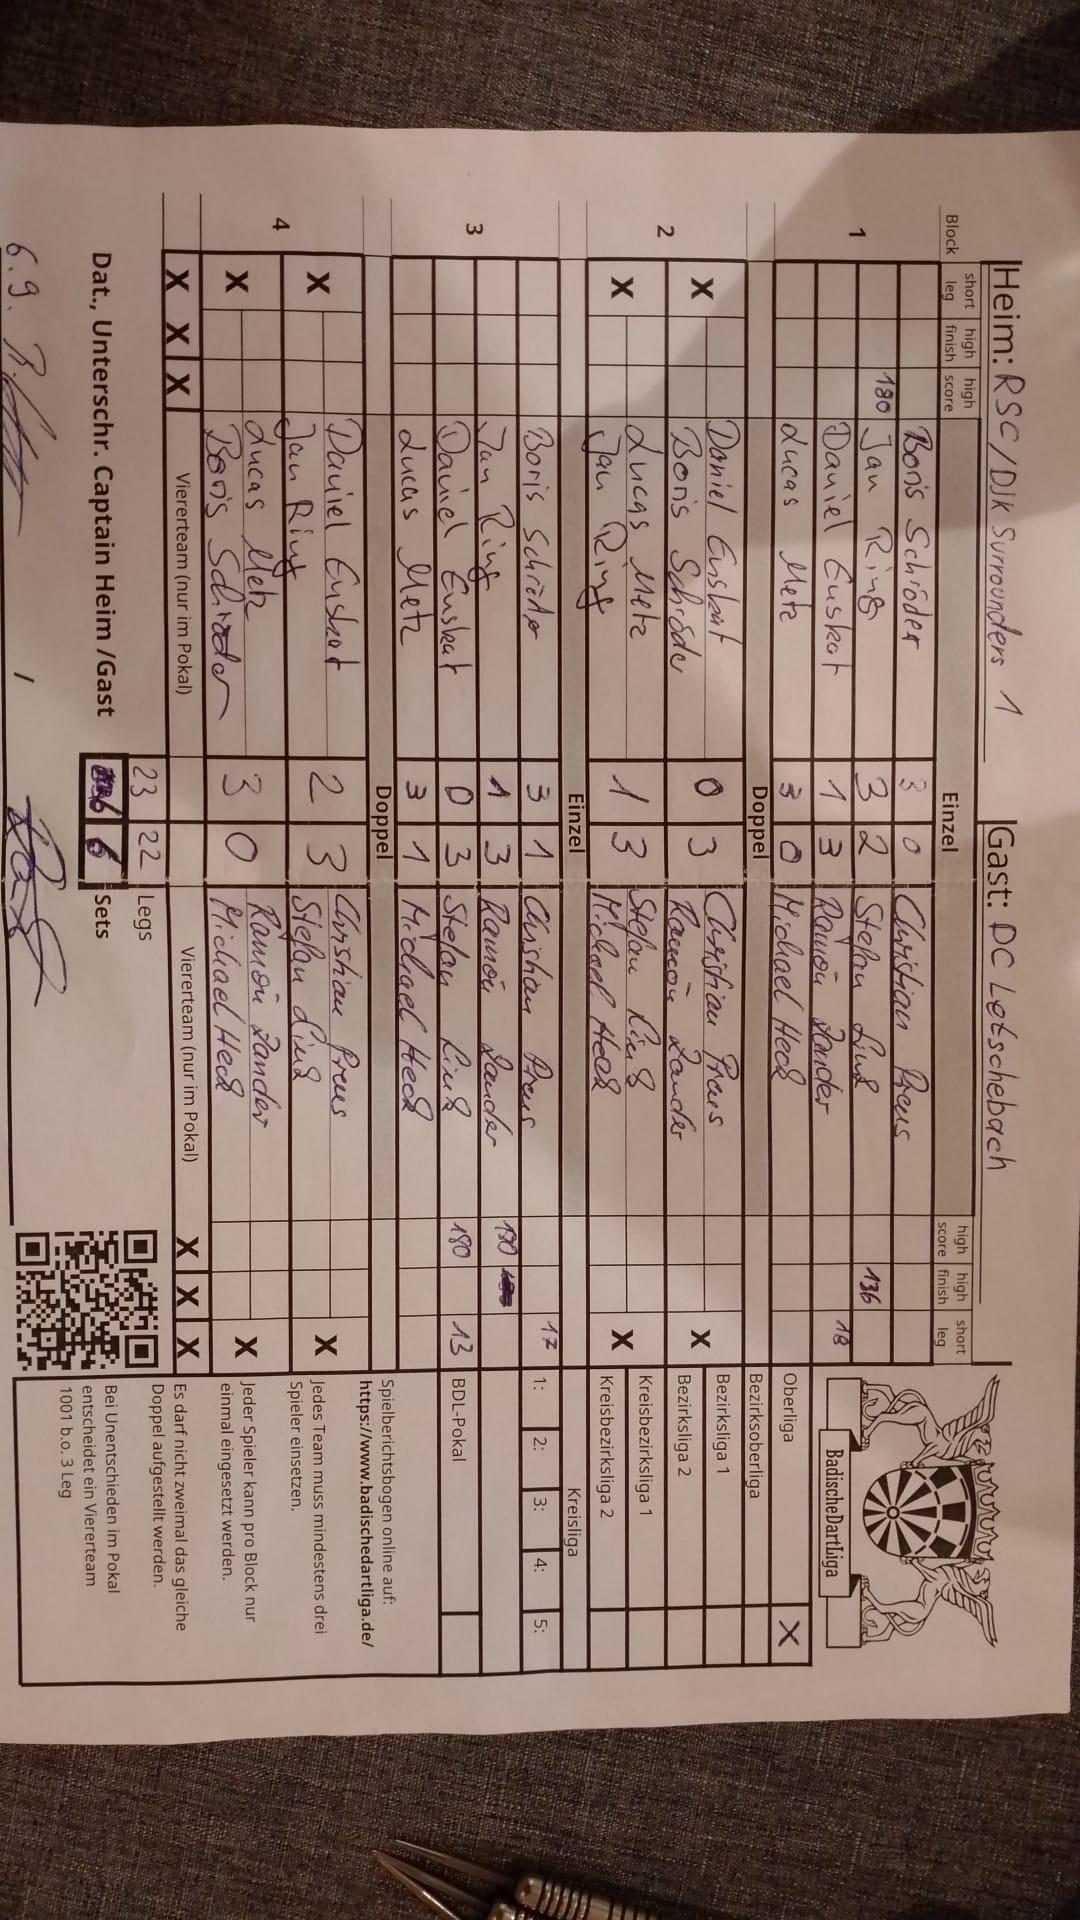 Heim: RSC/DJK Surrounders 1 Gast: DC Letschebach
Block short leg high finish high score Einzel high score high finish short leg
1
Boris Schröder 3 0 Christian Preus
180 Jan Ring 3 2 Stefan Link 136
Daniel Euskat 1 3 Ramon Zander 18
Lucas Metz 3 0 Michael Heck
Doppel
2
Daniel Euskat Christian Preus
X Boris Schröder 0 3 Ramon Zander X
Lucas Metz Stefan Link
X Jan Ring 1 3 Michael Heck X
Einzel
3
Boris Schröder 3 1 Christian Preus 17
Jan Ring 1 3 Ramon Zander 180
Daniel Euskat 0 3 Stefan Link 180 13
Lucas Metz 3 1 Michael Heck
Doppel
4
Daniel Euskat Christian Preus
X Jan Ring 2 3 Stefan Link X
Lucas Metz Ramon Zander
X Boris Schröder 3 0 Michael Heck X
X X X Viererteam (nur im Pokal) Viererteam (nur im Pokal) X X X
23 22 Legs
Dat., Unterschr. Captain Heim /Gast 6 6 Sets
6.9. /
BadischeDartLiga
Oberliga X
Bezirksoberliga
Bezirksliga 1
Bezirksliga 2
Kreisbezirksliga 1
Kreisbezirksliga 2
Kreisliga
1: 2: 3: 4: 5:
BDL-Pokal
Spielberichtsbogen online auf:
https://www.badischedartliga.de/
Jedes Team muss mindestens drei
Spieler einsetzen.
Jeder Spieler kann pro Block nur
einmal eingesetzt werden.
Es darf nicht zweimal das gleiche
Doppel aufgestellt werden.
Bei Unentschieden im Pokal
entscheidet ein Viererteam
1001 b.o. 3 Leg